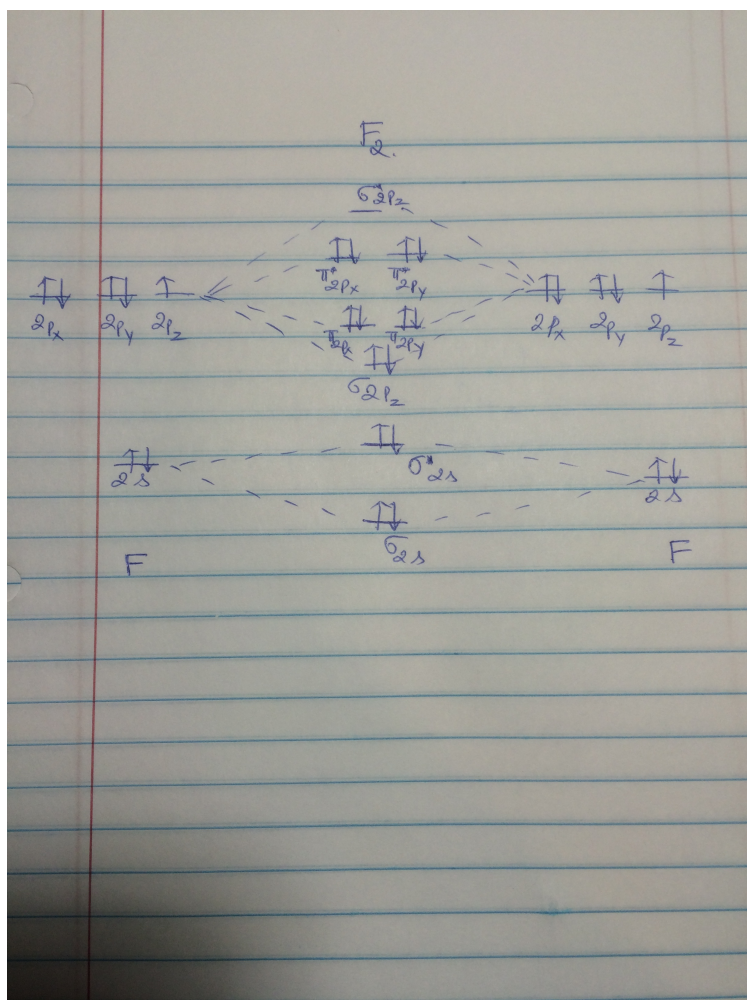 F₂.
σ*2pz
⇅ ⇅
π*2px π*2py
⇅ ⇅ ↑ ⇅ ⇅ ↑
2px 2py 2pz 2px 2py 2pz
⇅ ⇅
π2px π2py
⇅
σ2pz
⇅
σ*2s
⇅ ⇅
2s 2s
⇅
σ2s
F F